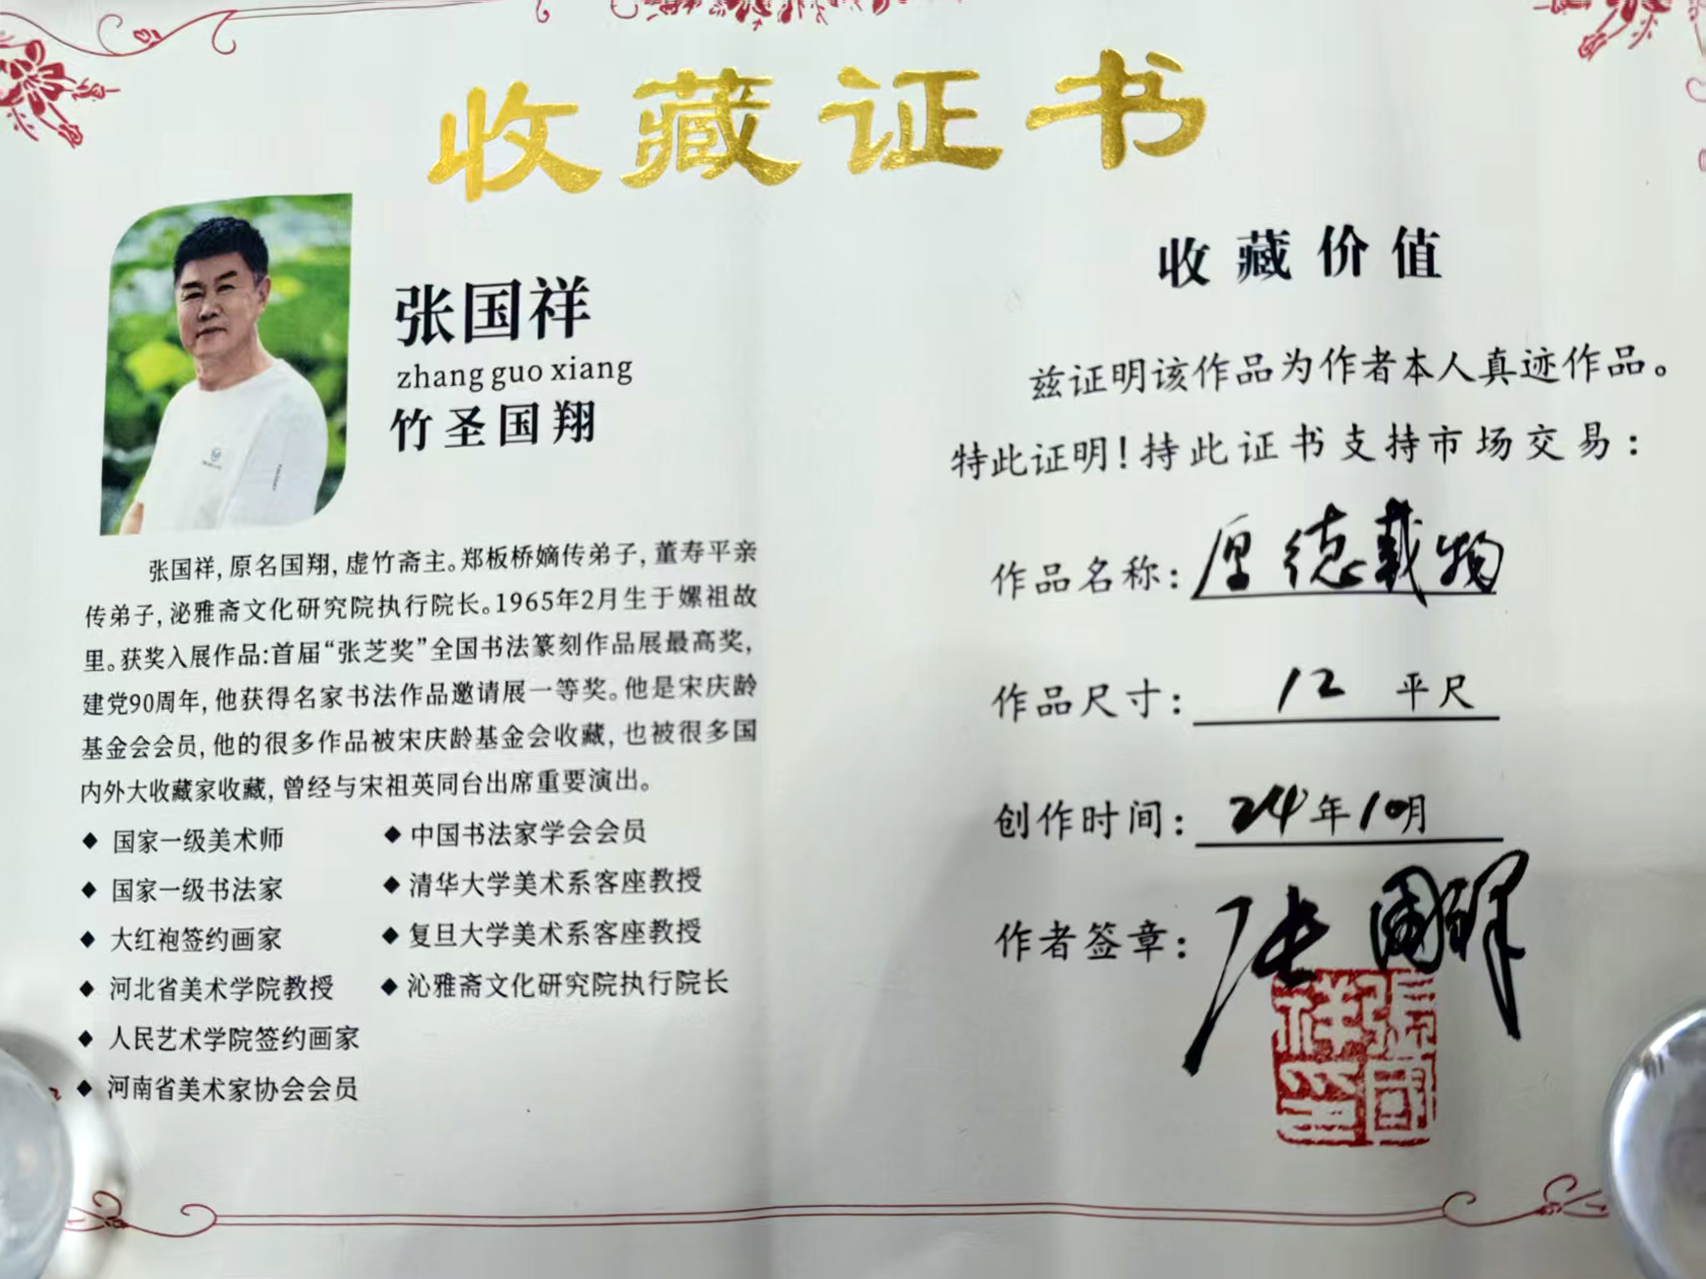 收藏证书
张国祥
zhang guo xiang
竹圣国翔
张国祥,原名国翔,虚竹斋主。郑板桥嫡传弟子,董寿平亲
传弟子,泌雅斋文化研究院执行院长。1965年2月生于嫘祖故
里。获奖入展作品:首届“张芝奖”全国书法篆刻作品展最高奖,
建党90周年,他获得名家书法作品邀请展一等奖。他是宋庆龄
基金会会员,他的很多作品被宋庆龄基金会收藏,也被很多国
内外大收藏家收藏,曾经与宋祖英同台出席重要演出。
◆ 国家一级美术师
◆ 国家一级书法家
◆ 大红袍签约画家
◆ 河北省美术学院教授
◆ 人民艺术学院签约画家
◆ 河南省美术家协会会员
◆ 中国书法家学会会员
◆ 清华大学美术系客座教授
◆ 复旦大学美术系客座教授
◆ 沁雅斋文化研究院执行院长
收藏价值
兹证明该作品为作者本人真迹作品。
特此证明!持此证书支持市场交易:
作品名称:厚德载物
作品尺寸:12 平尺
创作时间:24年10月
作者签章:张国祥